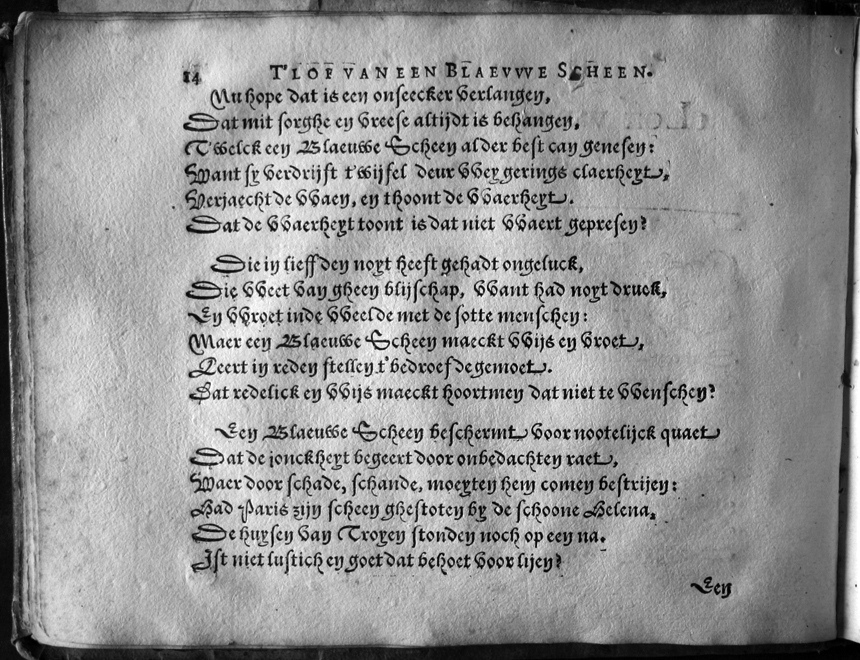 14 T'LOF VAN EEN BLAEVWE SCHEEN.
Nu hope dat is een onseecker verlangen,
Dat mit sorghe en vreese altijdt is behangen,
T'welck een Blaeuwe Scheen alder best can genesen:
Want sy verdrijft t'wijfel deur VVeygerings claerheyt,
Verjaecht de VVaen, en thoont de VVaerheyt.
Dat de VVaerheyt toont is dat niet VVaert gepresen?
Die in lieff'den noyt heeft gehadt ongeluck,
Die VVeet van gheen blijschap, VVant had noyt druck,
En VVroet inde VVeelde met de sotte menschen:
Maer een Blaeuwe Scheen maeckt VVijs en vroet,
Leert in reden stellen t'bedroefde gemoet.
Dat redelick en VVijs maeckt hoortmen dat niet te VVenschen?
Een Blaeuwe Scheen beschermt voor nootelijck quaet
Dat de jonckheyt begeert door onbedachten raet,
Waer door schade, schande, moeyten hem comen bestrijen:
Had Paris zijn scheen ghestoten by de schoone Helena,
De huysen van Troyen stonden noch op een na.
Ist niet lustich en goet dat behoet voor lijen?
Een